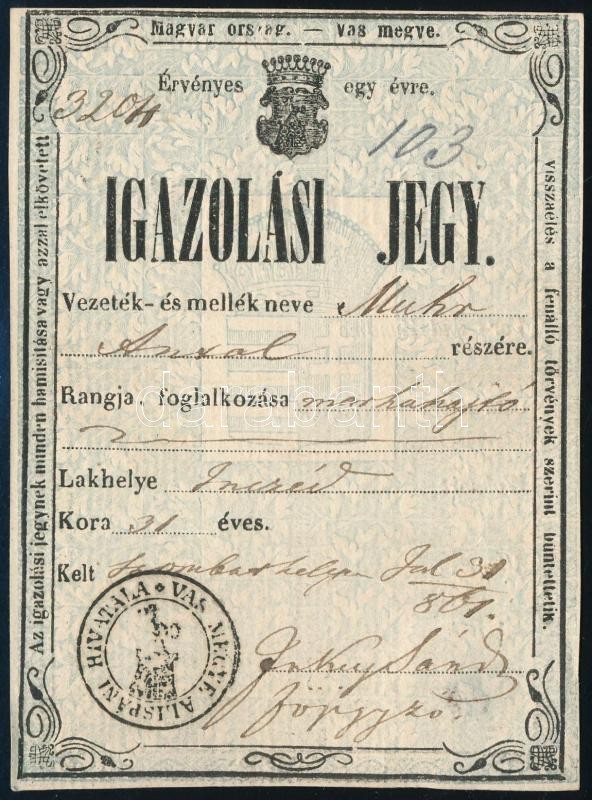 Magyar ország. — Vas megye.
Érvényes egy évre.
3204
103
IGAZOLÁSI JEGY.
Vezeték- és mellék neve Muhr
Antal részére.
Rangja, foglalkozása marhahajtó
Lakhelye
Kora 31 éves.
Kelt Szombathelyen Jul 31
861.
Sánd
főjegyző.
VAS MEGYE ALISPÁNI HIVATALA
Az igazolási jegynek minden hamisítása vagy azzal elkövetett
visszaélés a fenálló törvények szerint büntettetik.
darabanth